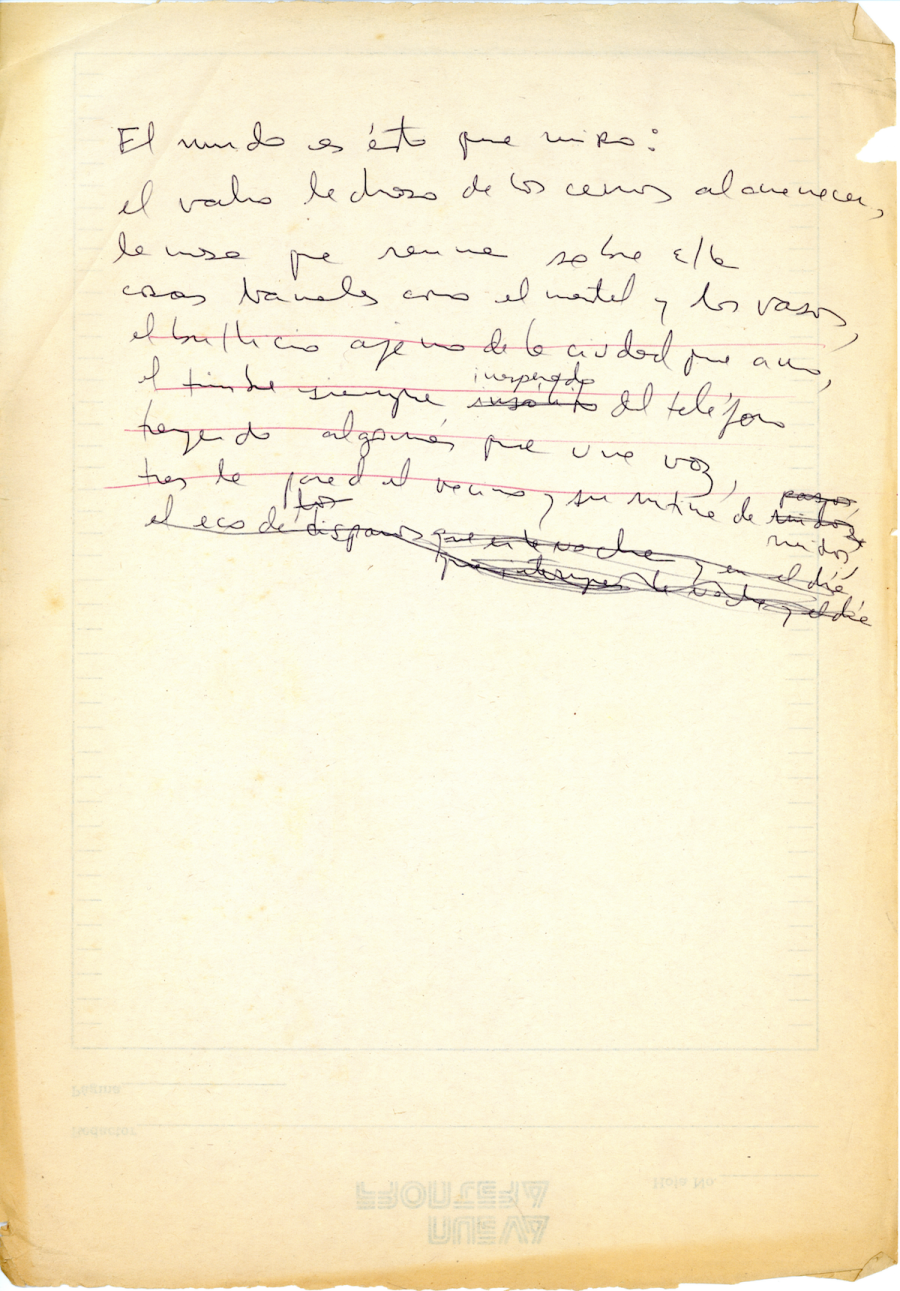 El mundo es ésto que miro:
el vaho lechoso de los cerros al amanecer,
la mesa que reune sobre ella
cosas banales como el mantel y los vasos,
el bullicio ajeno de la ciudad que amo,
inesperado
el timbre siempre insólito del teléfono
trayendo algo más que una voz,
tras la pared el vecino y su rutina de pasos,
ruidos
ruidos,
los
el eco de disparos que en la noche y en el día
que interrumpen la noche y el día
Página
Redactor
Hoja No.
FRONTERA
NUEVA